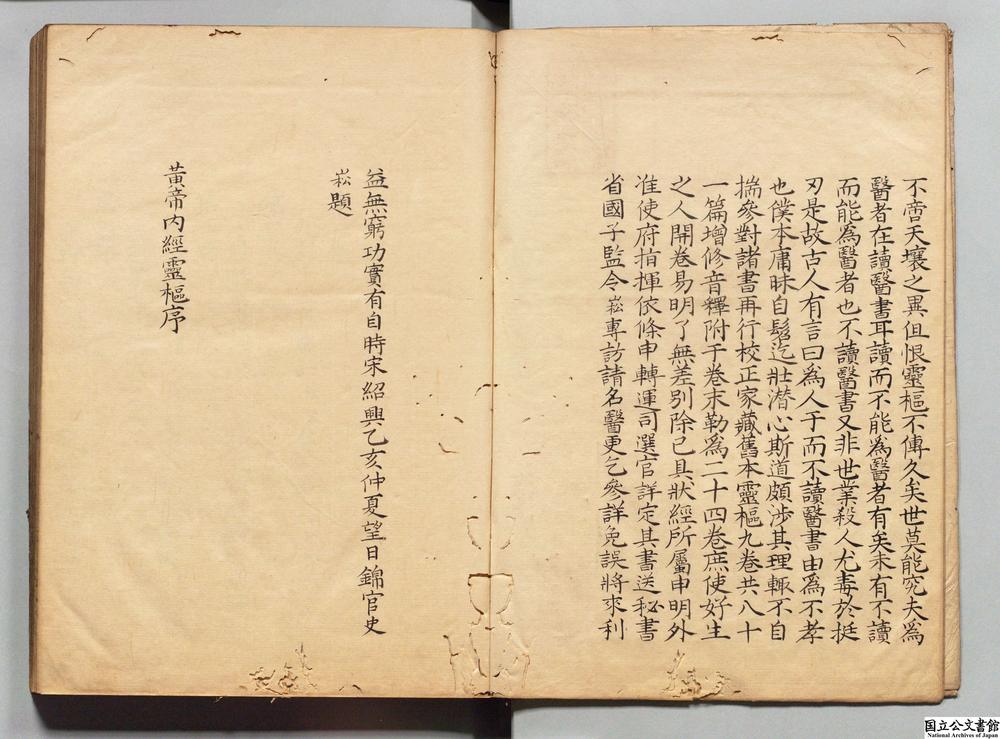 不啻天壤之異但恨靈樞不傳久矣世莫能究夫為
醫者在讀醫書耳讀而不能為醫者有矣未有不讀
而能為醫者也不讀醫書又非世業殺人尤毒於挺
刃是故古人有言曰為人子而不讀醫書由為不孝
也僕本庸昧自髫迄壯潜心斯道頗涉其理輒不自
揣參對諸書再行校正家藏舊本靈樞九卷共八十
一篇增修音釋附于卷末勒為二十四卷庶使好生
之人開卷易明了無差別除已具狀經所屬申明外
准使府指揮依條申轉運司選官詳定其書送秘書
省國子監令崧専訪請名醫更乞參詳免誤將來利
益無窮功實有自時宋紹興乙亥仲夏望日錦官史
崧題
黃帝內經靈樞序
国立公文書館
National Archives of Japan